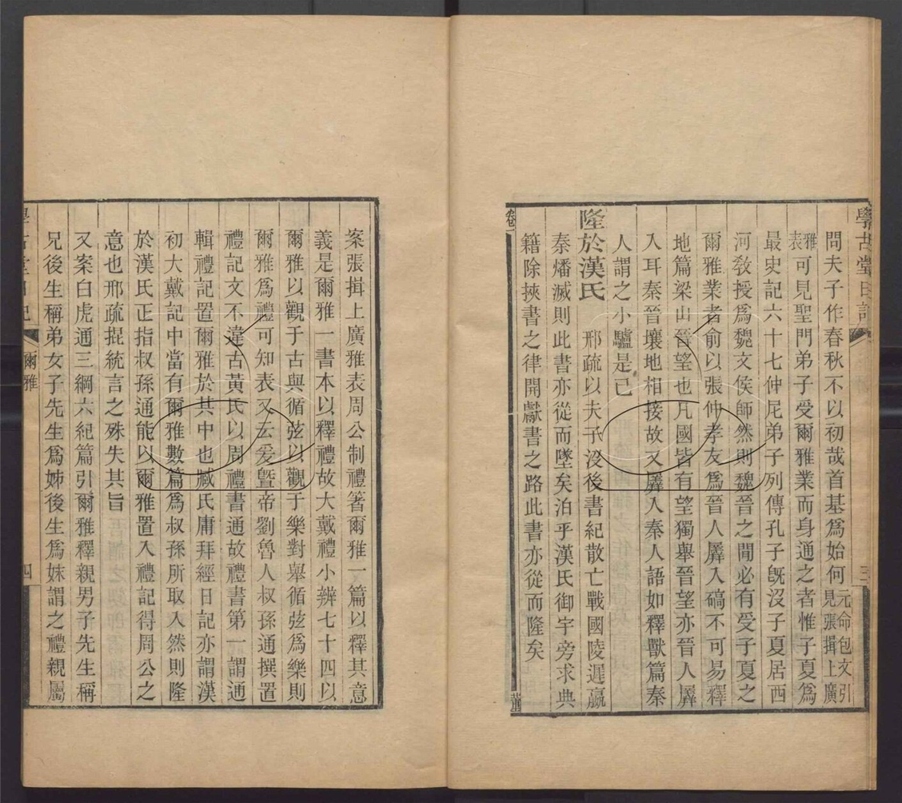 學古堂日記
三
問夫子作春秋不以初哉首基爲始何元命包文引見張揖上廣
雅表可見聖門弟子受爾雅業而身通之者惟子夏爲
最史記六十七仲尼弟子列傳孔子旣沒子夏居西
河敎授爲魏文侯師然則魏晉之閒必有受子夏之
爾雅業者俞以張仲孝友爲晉人羼入碻不可易釋
地篇梁山晉望也凡國皆有望獨舉晉望亦晉人羼
入耳秦晉壤地相接故又羼入秦人語如釋獸篇秦
人謂之小驢是已
隆於漢氏 邢疏以夫子沒後書紀散亡戰國陵遲嬴
秦燔滅則此書亦從而墜矣洎乎漢氏御宇旁求典
籍除挾書之律開獻書之路此書亦從而隆矣
案張揖上廣雅表周公制禮著爾雅一篇以釋其意
義是爾雅一書本以釋禮故大戴禮小辨七十四以
爾雅以觀于古與循弦以觀于樂對舉循弦爲樂則
爾雅爲禮可知表又云爰曁帝劉魯人叔孫通撰置
禮記文不違古黃氏以周禮書通故禮書第一謂通
輯禮記置爾雅於其中也臧氏庸拜經日記亦謂漢
初大戴記中當有爾雅數篇爲叔孫所取入然則隆
於漢氏正指叔孫通能以爾雅置入禮記得周公之
意也邢疏捉統言之殊失其旨
又案白虎通三綱六紀篇引爾雅釋親男子先生稱
兄後生稱弟女子先生爲姊後生爲妹謂之禮親屬
學古堂日記
爾雅
四